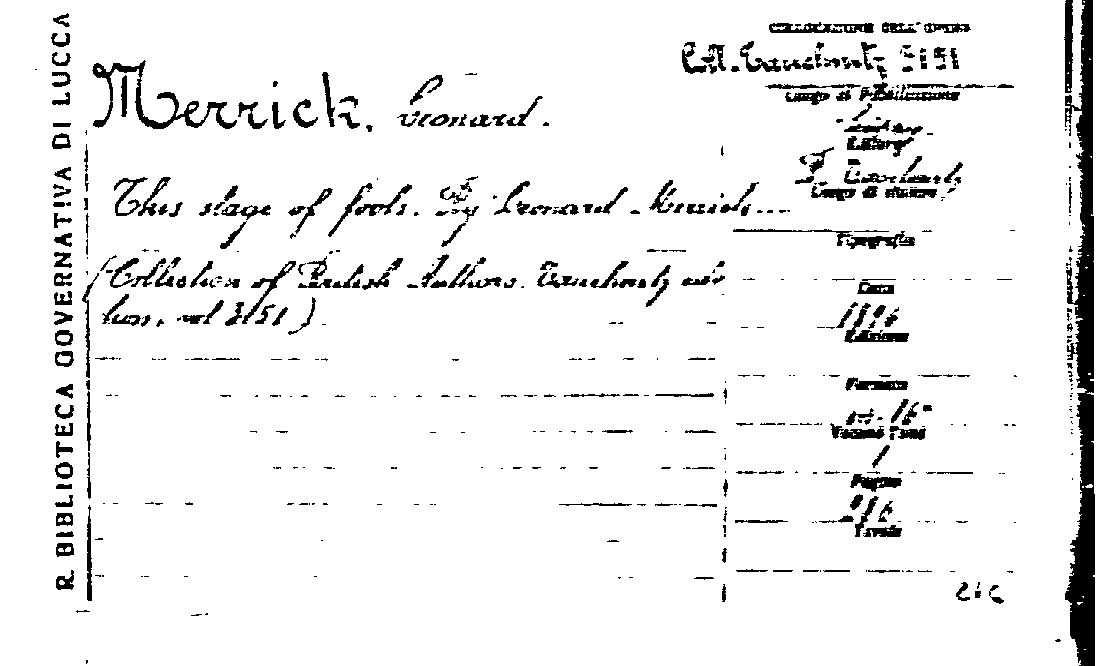 R. BIBLIOTECA GOVERNATIVA DI LUCCA
COLLOCAZIONE DELL'OPERA
Coll. Tauchnitz 3151
Merrick, Leonard.
Luogo di Pubblicazione
Editore
F. Tauchnitz
Luogo di stampa
This stage of fools. By Leonard Merrick...
Tipografia
(Collection of British Authors. Tauchnitz edi-
tion, vol 3151)
Data
1896
Edizione
Formato
in-16°
Volume Tomo
1
Pagine
Tavole